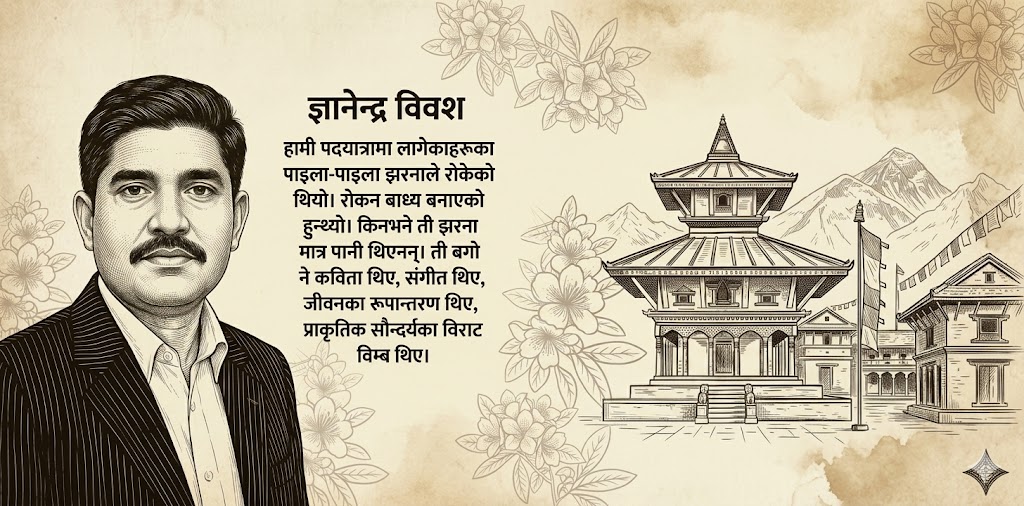 ज्ञानेन्द्र विवश
हामी पदयात्रामा लागेकाहरूका
पाइला-पाइला झरनाले रोकेको
थियो। रोकन बाध्य बनाएको
हुन्थ्यो। किनभने ती झरना
मात्र पानी थिएनन्। ती बगो
ने कविता थिए, संगीत थिए,
जीवनका रूपान्तरण थिए,
प्राकृतिक सौन्दर्यका विराट
विम्ब थिए।